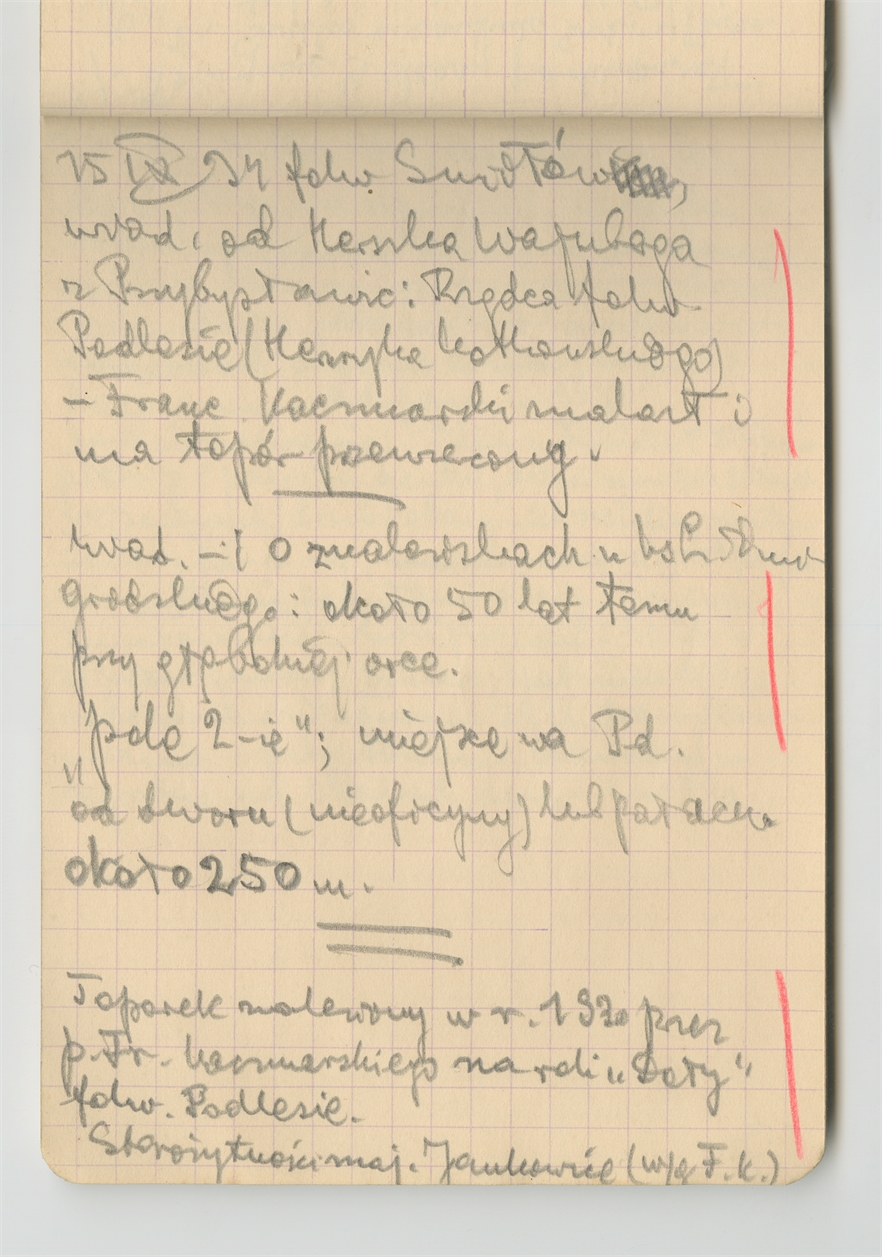 15 IX 34 folw. Smiłów,
wiad. od Herszka Wajnbaga
z Przybysławic: Rządca folw.
Podlesie (Henryka Kotkowskiego)
– Franc Kaczmarski znalazł i
ma topór przewiercony.
wiad. –i o znaleziskach u
grodzkiego: około 50 lat temu
przy głębokiej orce.
"pole 2-ie"; miejsce na Pd.
od dworu (nieoficyny) lub pałacu
około 250 m.
Toporek znaleziony w r. 1930 przez
p. Fr. Kaczmarskiego na roli "Doły"
folw. Podlesie.
Starożytności maj. Jankowice (w/g F.K.)